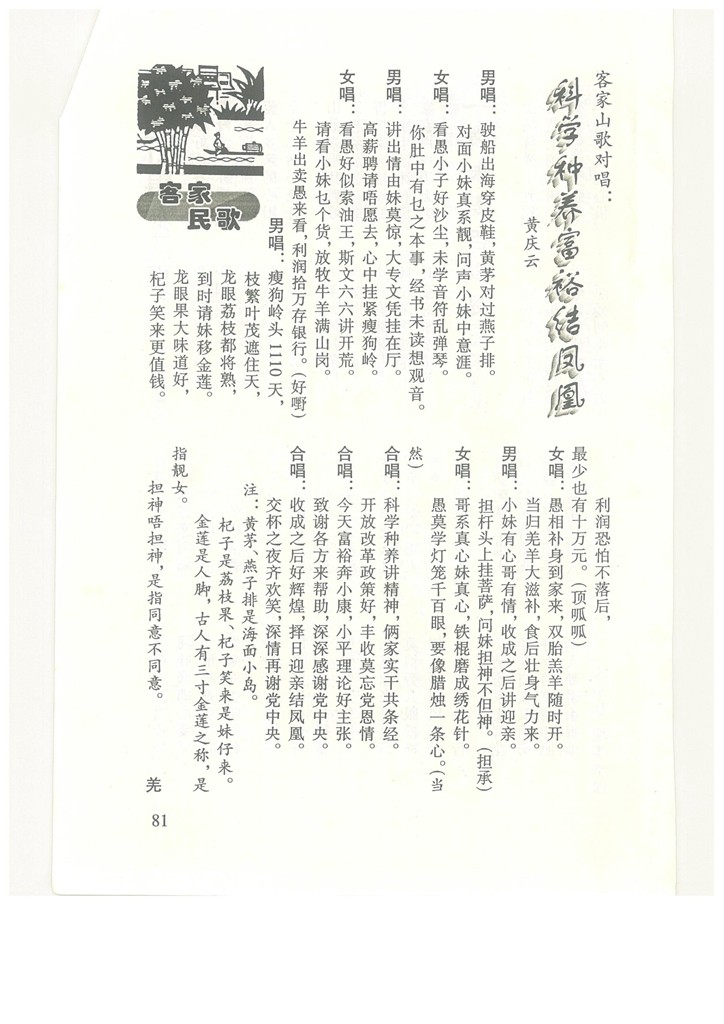 客家山歌对唱：
科学种养富裕结凤凰
黄庆云
男唱：驶船出海穿皮鞋，黄茅对过燕子排。
对面小妹真系靓，问声小妹中意涯。
女唱：看愚小子好沙尘，未学音符乱弹琴。
你肚中有乜之本事，经书未读想观音。
男唱：讲出情由妹莫惊，大专文凭挂在厅。
高薪聘请唔愿去，心中挂紧瘦狗岭。
女唱：看愚好似索油王，斯文六六讲开荒。
请看小妹乜个货，放牧牛羊满山岗。
牛羊出卖愚来看，利润拾万存银行。（好嘢）
男唱：瘦狗岭头1110天，
枝繁叶茂遮住天，
龙眼荔枝都将熟，
到时请妹移金莲。
龙眼果大味道好，
杞子笑来更值钱。
客家
民歌
利润恐怕不落后，
最少也有十万元。（顶呱呱）
女唱：愚相补身到家来，双胎羔羊随时开。
当归羌羊大滋补，食后壮身气力来。
男唱：小妹有心哥有情，收成之后讲迎亲。
担杆头上挂菩萨，问妹担神不但神。（担承）
女唱：哥系真心妹真心，铁棍磨成绣花针。
愚莫学灯笼千百眼，要像腊烛一条心。（当
然）
合唱：科学种养讲精神，俩家实干共条经。
开放改革政策好，丰收莫忘党恩情。
合唱：今天富裕奔小康，小平理论好主张。
致谢各方来帮助，深深感谢党中央。
合唱：收成之后好辉煌，择日迎亲结凤凰。
交杯之夜齐欢笑，深情再谢党中央。
注：黄茅、燕子排是海面小岛。
杞子是荔枝果、杞子笑来是妹仔来。
金莲是人脚，古人有三寸金莲之称，是
指靓女。
担神唔担神，是指同意不同意。
羌
81